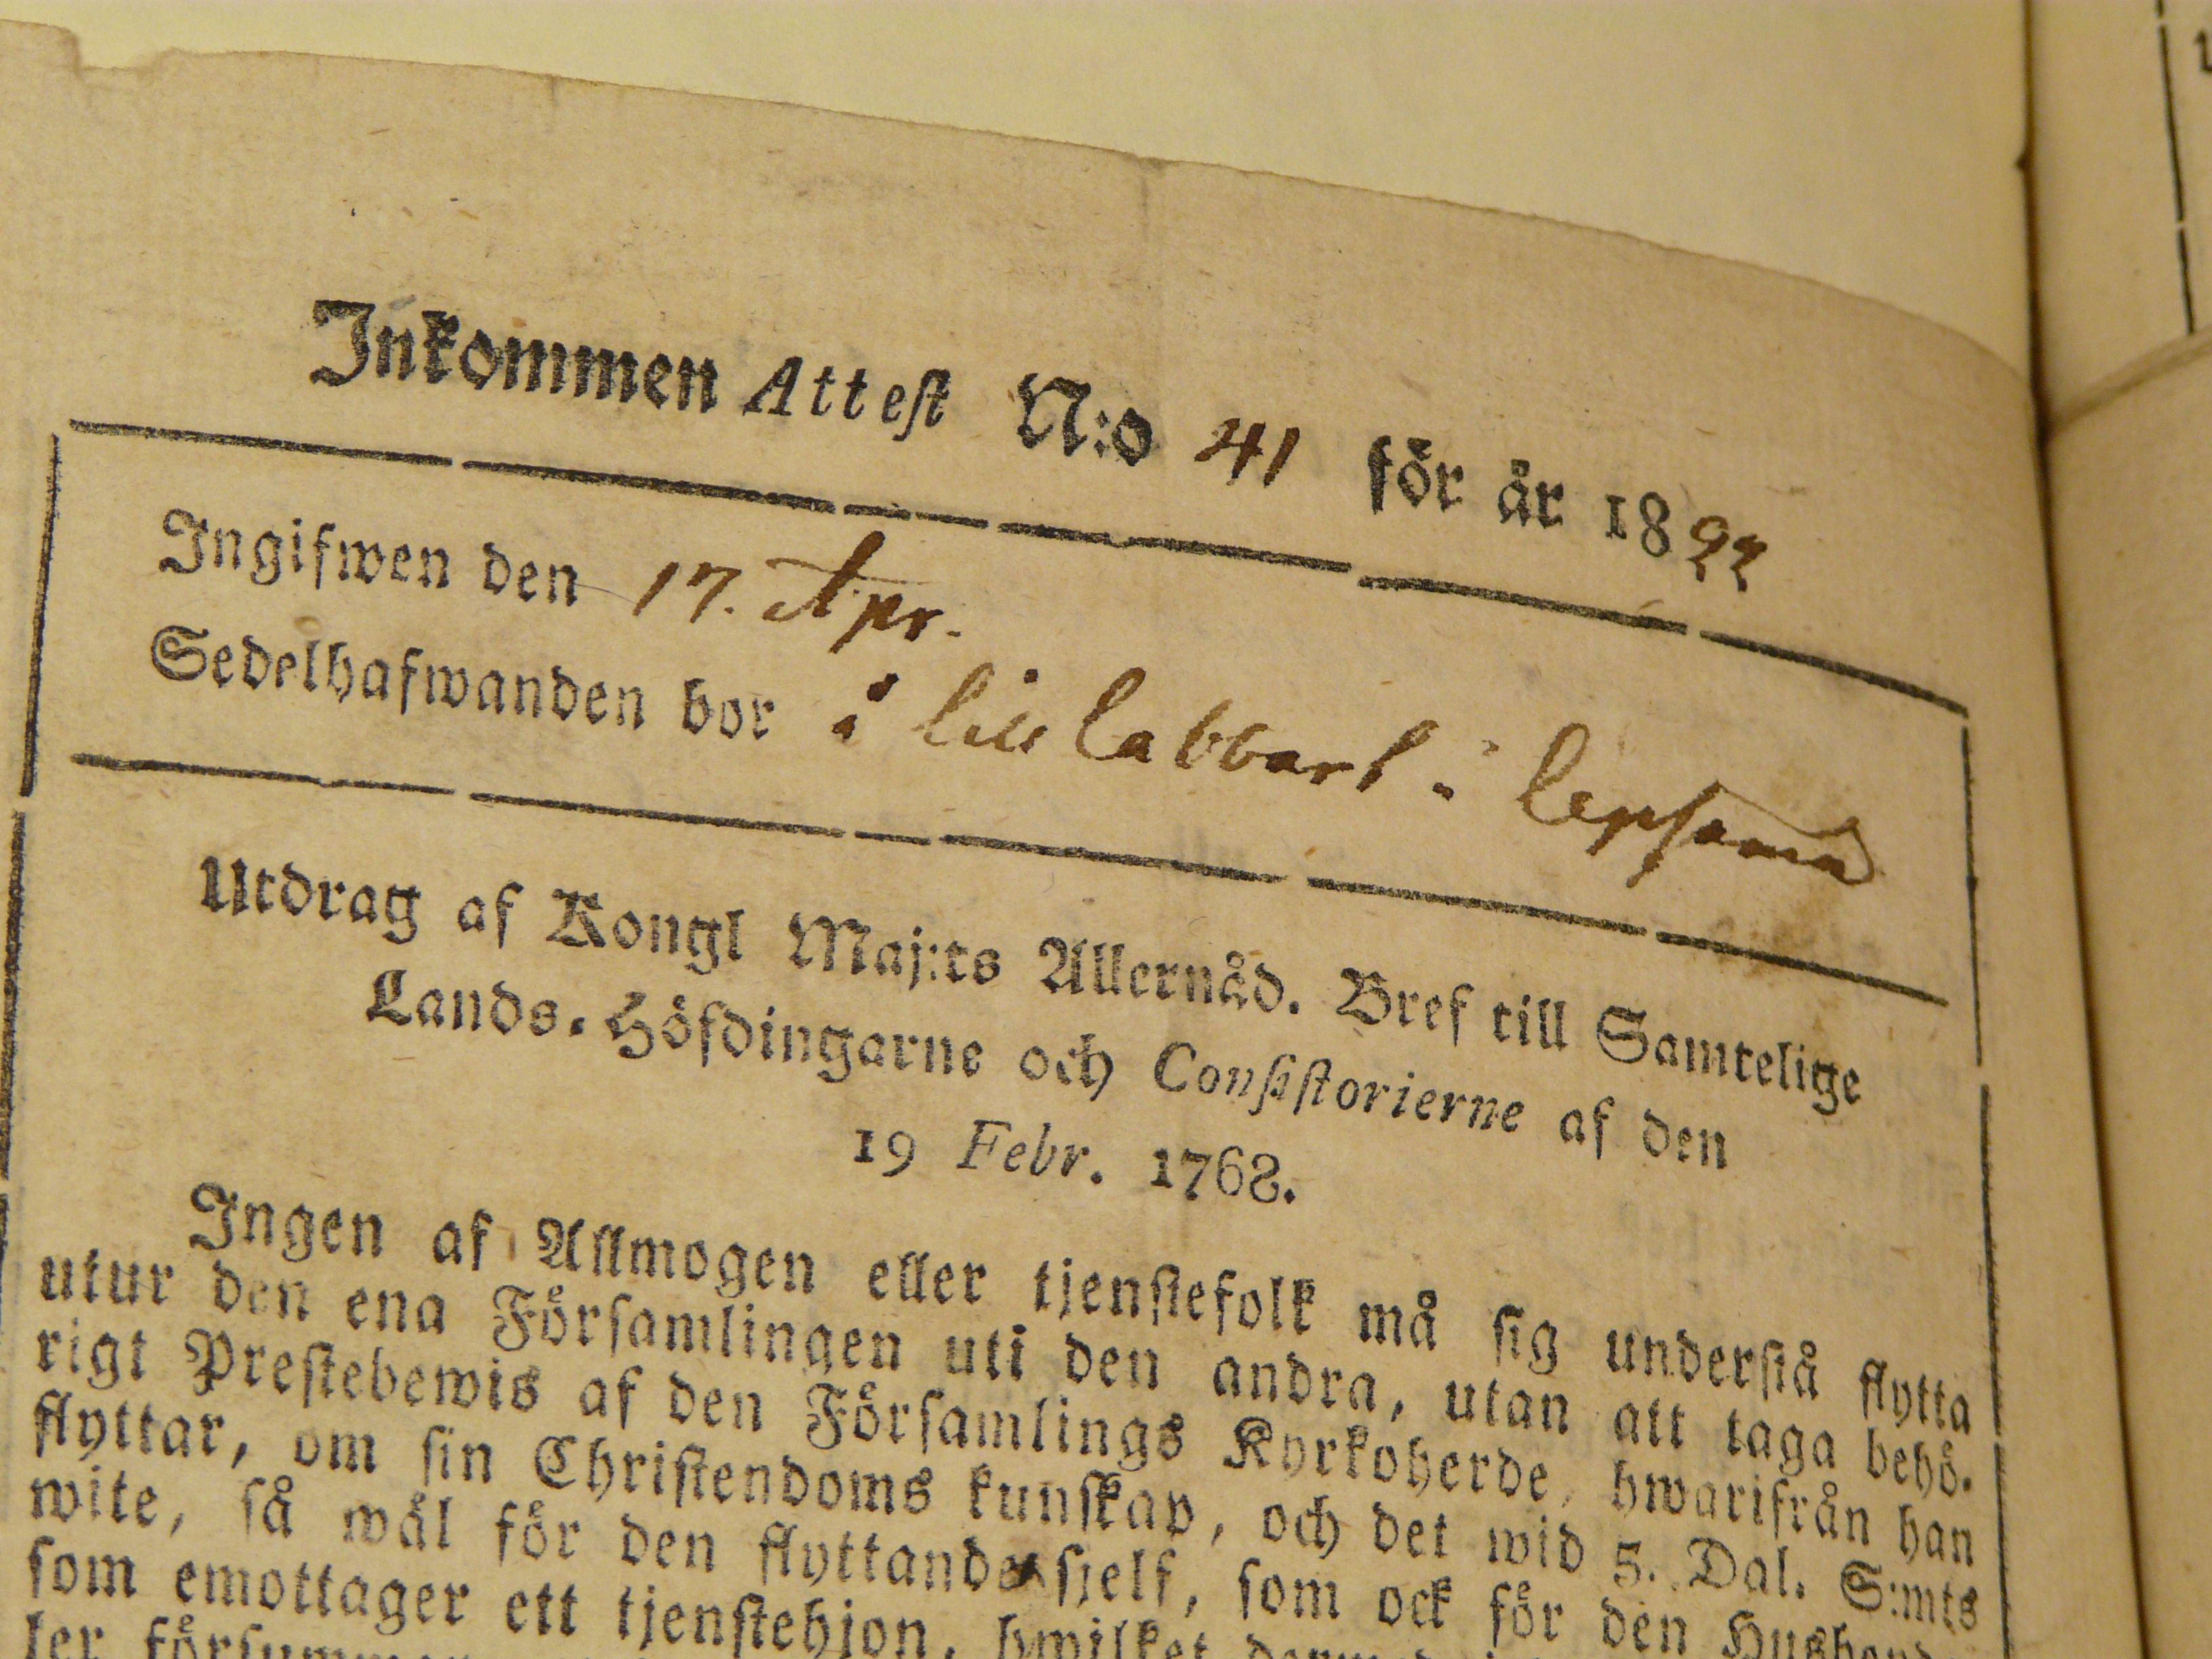 Inkommen Attest N:o 41 för år 1822
Ingifwen den 17. Apr.
Sedelhafwanden bor i Lill Labbart i
Utdrag af Kongl Maj:ts Allernåd. Bref till Samtelige
Lands-Höfdingarne och Consistorierne af den
19 Febr. 1768.
Ingen af Allmogen eller tjenstefolk må sig understå flytta
utur den ena Församlingen uti den andra, utan att taga behö-
rigt Prestebewis af den Församlings Kyrkoherde, hwarifrån han
flyttar, om sin Christendoms kunskap, och det wid 5. Dal. S:mts
wite, så wäl för den flyttande sjelf, som ock för den
som emottager ett tjenstehjon, hwilket